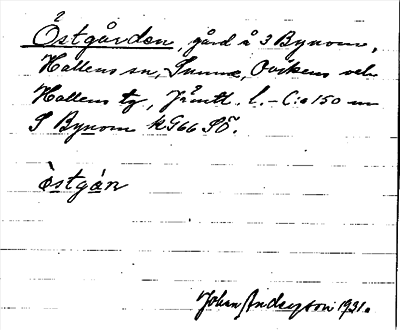 Östgården, gård å 3 Bynom,
Hallens sn, Sunne, Ovikens och
Hallens tg, Jämtl. l. – C:a 150 m
S Bynom kg66 SÖ.
òstgán
Johan Anderson 1931.